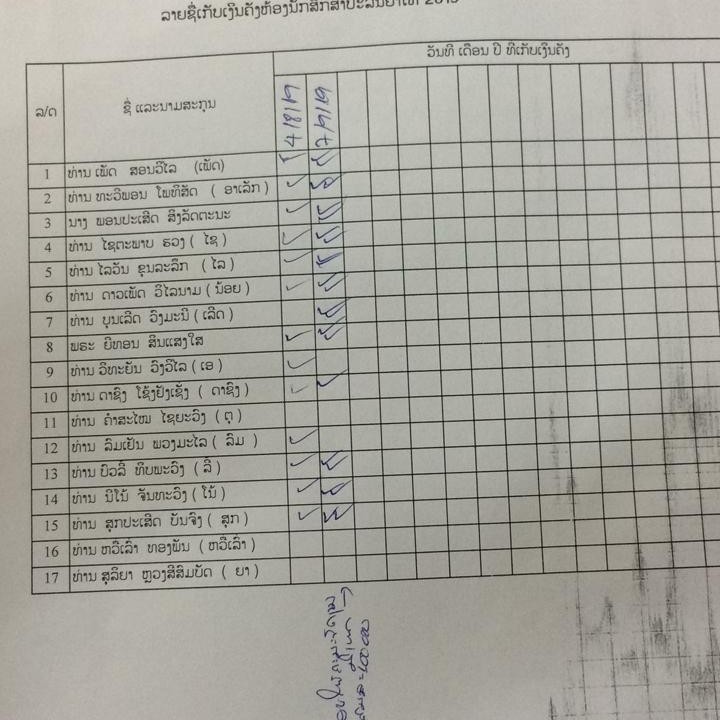 ລາຍຊື່ເກັບເງິນຄັງຫ້ອງນັກສຶກສາປະລິນຍາໂທ 2019
ວັນທີ ເດືອນ ປີ ທີ່ເກັບເງິນຄັງ
ລ/ດ ຊື່ ແລະນາມສະກຸນ 4/8/19 7/9/19
1 ທ່ານ ເພັດ ສອນວິໄລ (ເພັດ)
2 ທ່ານ ທະວີພອນ ໂພທິສັດ ( ອາເລັກ )
3 ນາງ ພອນປະເສີດ ສິງລັດຕະນະ
4 ທ່ານ ໄຊຕະພາບ ຮວງ ( ໄຊ )
5 ທ່ານ ໄລວັນ ຂຸນລະລຶກ ( ໄລ )
6 ທ່ານ ດາວເພັດ ວິໄລນາມ ( ນ້ອຍ )
7 ທ່ານ ບຸນເລີດ ວົງມະນີ ( ເລີດ )
8 ພຣະ ຍີທອນ ສິນແສງໃສ
9 ທ່ານ ວິທະຍັນ ວົງວິໄລ ( ເອ )
10 ທ່ານ ດາຊົງ ໂຊ້ງຢັງເຊັ້ງ ( ດາຊົງ )
11 ທ່ານ ຄຳສະໄໝ ໄຊຍະວົງ ( ຕຸ )
12 ທ່ານ ລົມເຢັນ ພວງມະໄລ ( ລົມ )
13 ທ່ານ ບົວລີ ທິບພະວົງ ( ລີ )
14 ທ່ານ ນີໂນ້ ຈັນທະວົງ ( ໂນ້ )
15 ທ່ານ ສຸກປະເສີດ ບັນຈົງ ( ສຸກ )
16 ທ່ານ ຫວີເລົ່າ ທອງພັນ ( ຫວີເລົ່າ )
17 ທ່ານ ສຸລິຍາ ຫຼວງສີສົມບັດ ( ຍາ )